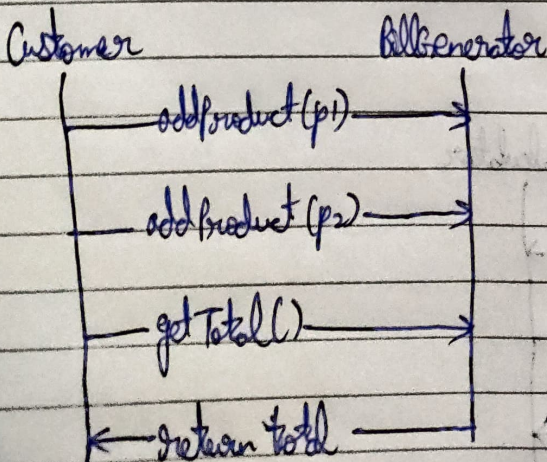 Customer BillGenerator
addProduct(p1)
addProduct(p2)
getTotal()
return total